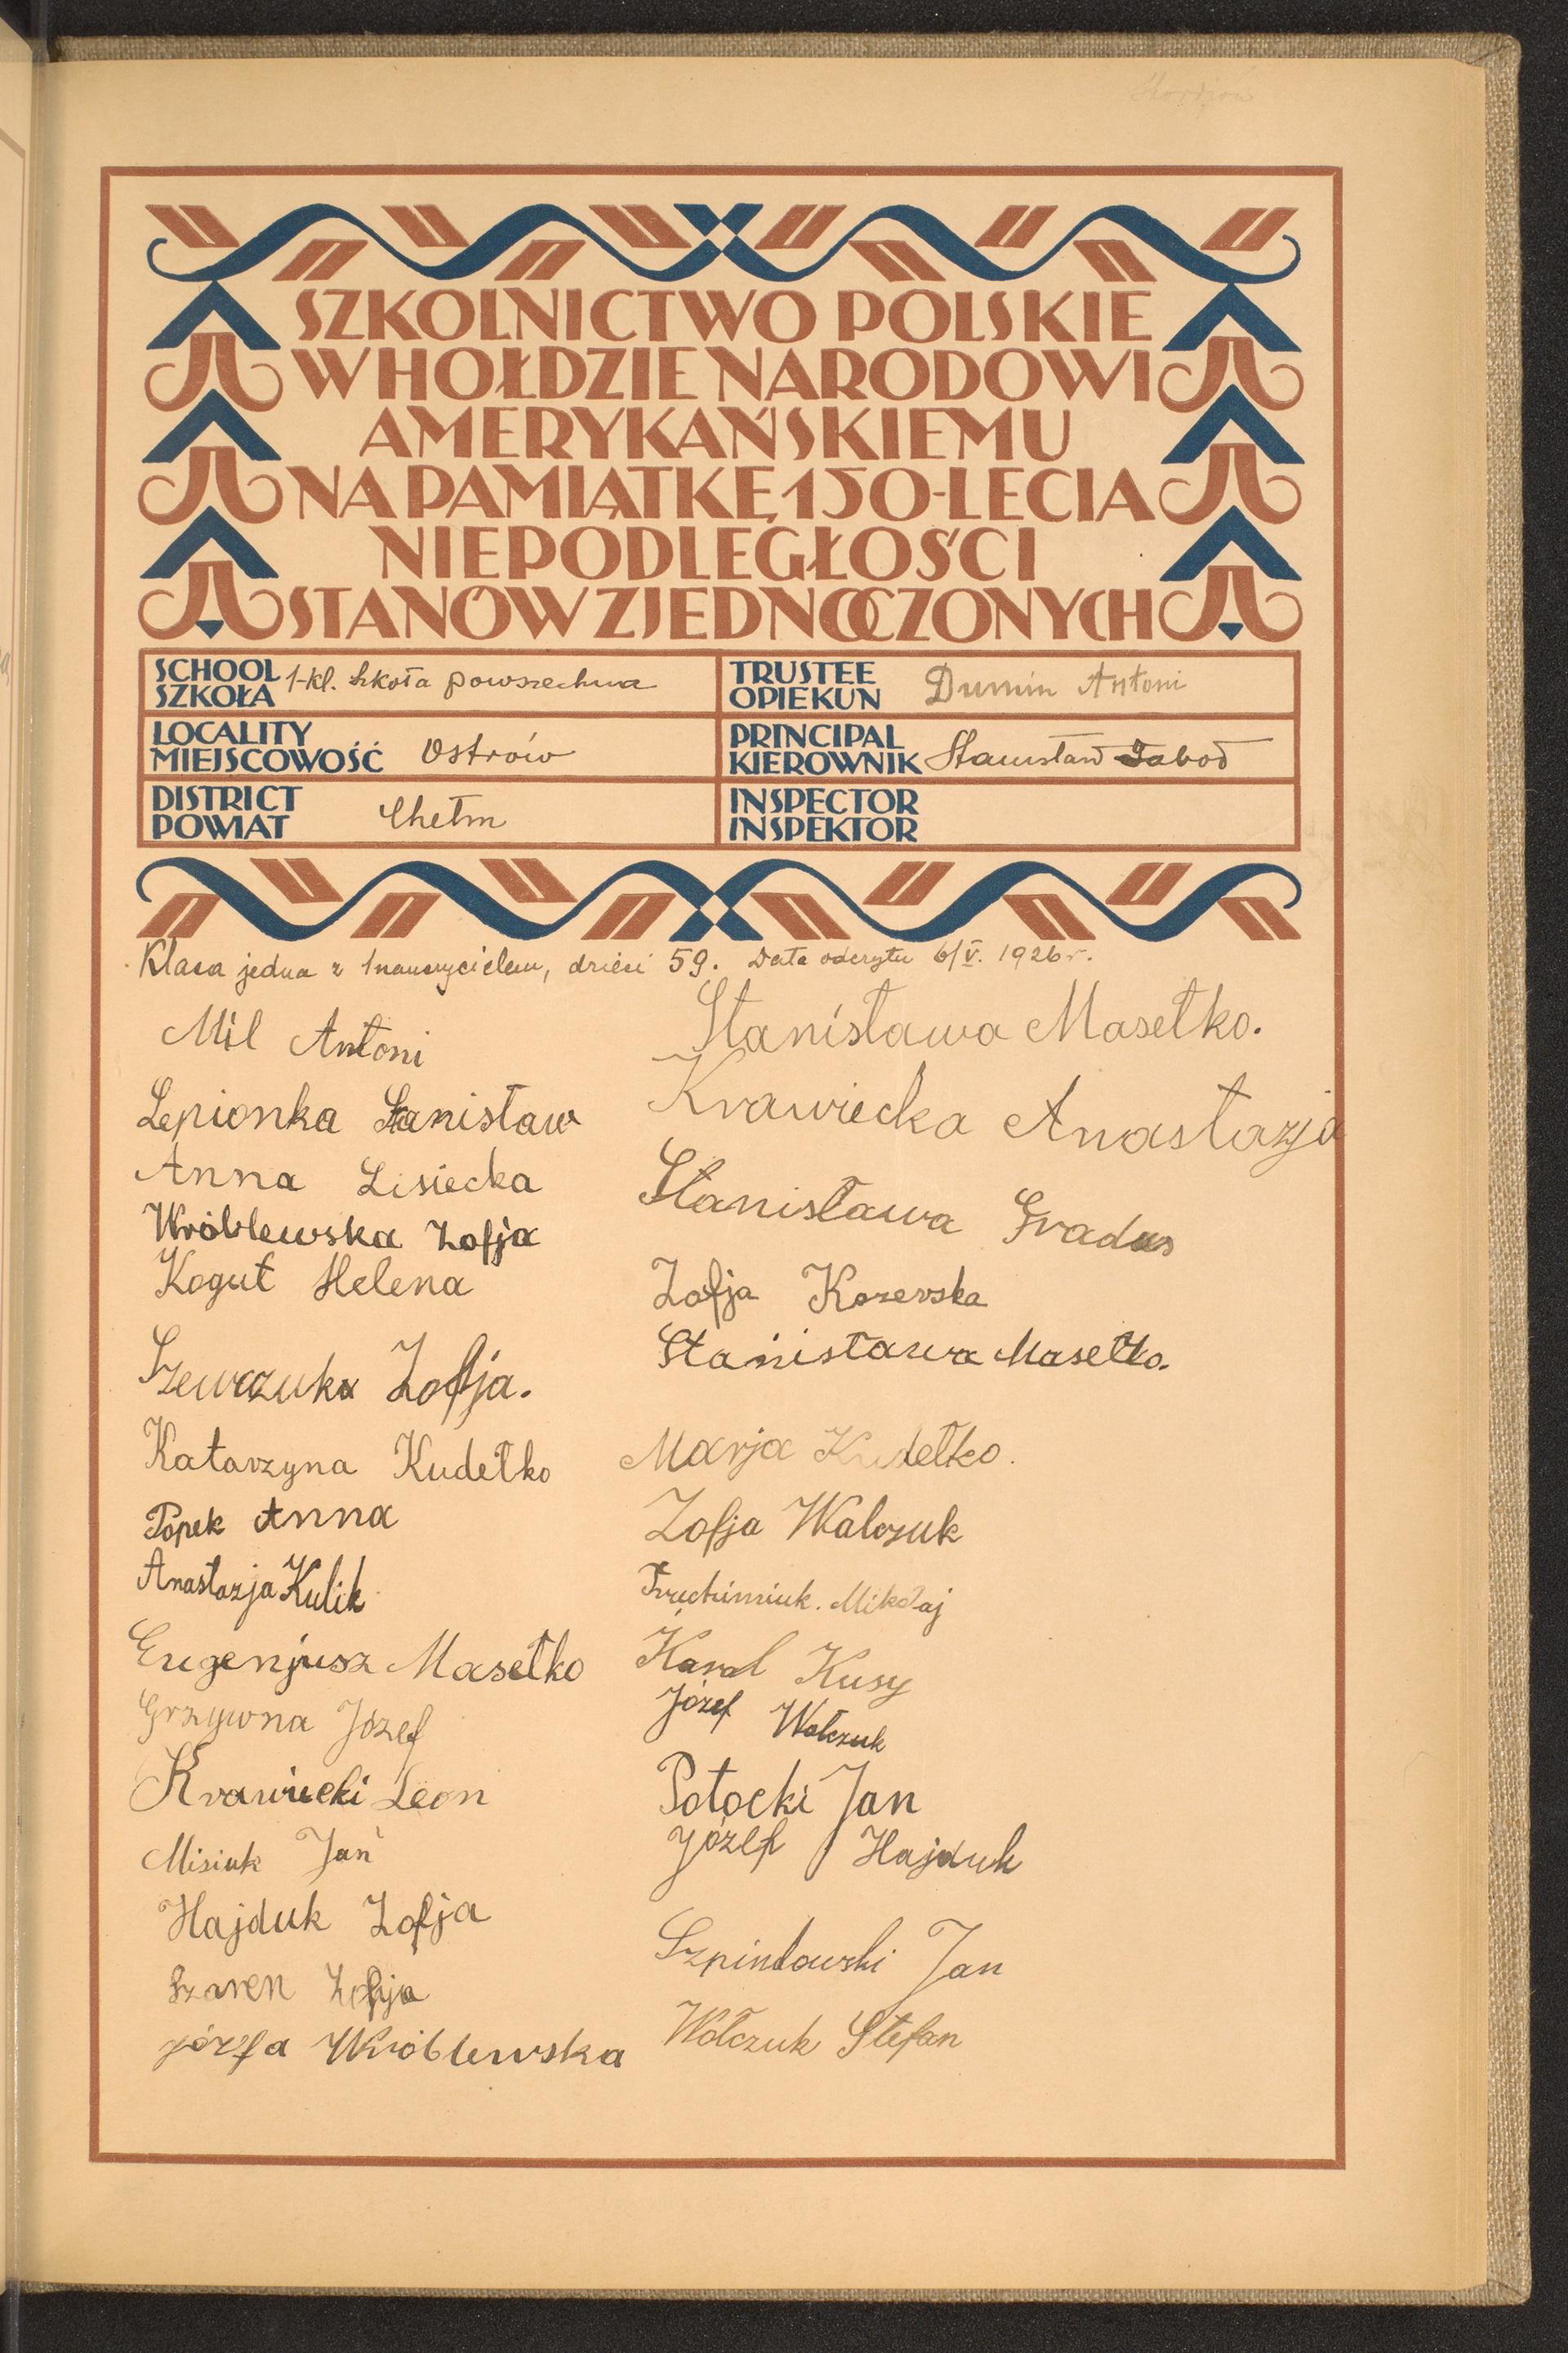 SZKOLNICTWO POLSKIE
W HOŁDZIE NARODOWI
AMERYKAŃSKIEMU
NA PAMIĄTKĘ 150-LECIA
NIEPODLEGŁOŚCI
STANÓW ZJEDNOCZONYCH
SCHOOL
SZKOŁA
1-kl. Szkoła powszechna
TRUSTEE
OPIEKUN
Dumin Antoni
LOCALITY
MIEJSCOWOŚĆ
Ostrów
PRINCIPAL
KIEROWNIK
Stanisław
DISTRICT
POWIAT
Chełm
INSPECTOR
INSPEKTOR
Klasa jedna z 1 nauczycielem, dzieci 59. Data odczytu 6/V. 1926 r.
Mil Antoni
Lepionka Stanisław
Anna Lisiecka
Wróblewska Zofja
Kogut Helena
Szewczuka Zofja.
Katarzyna Kudełko
Popek Anna
Anastazja Kulik
Eugenjusz Masełko
Grzywna Józef
Krawiecki Leon
Misiuk Jan
Hajduk Zofja
Szaren Zofja
Józefa Wróblewska
Stanisława Masełko.
Krawiecka Anastazja
Stanisława Gradus
Zofja Kozerska
Stanisława Masełko.
Marja Kudełko.
Zofja Walczuk
Mikołaj
Karol Kusy
Józef Wołczuk
Potocki Jan
Józef Hajduk
Szpindowski Jan
Wołczuk Stefan